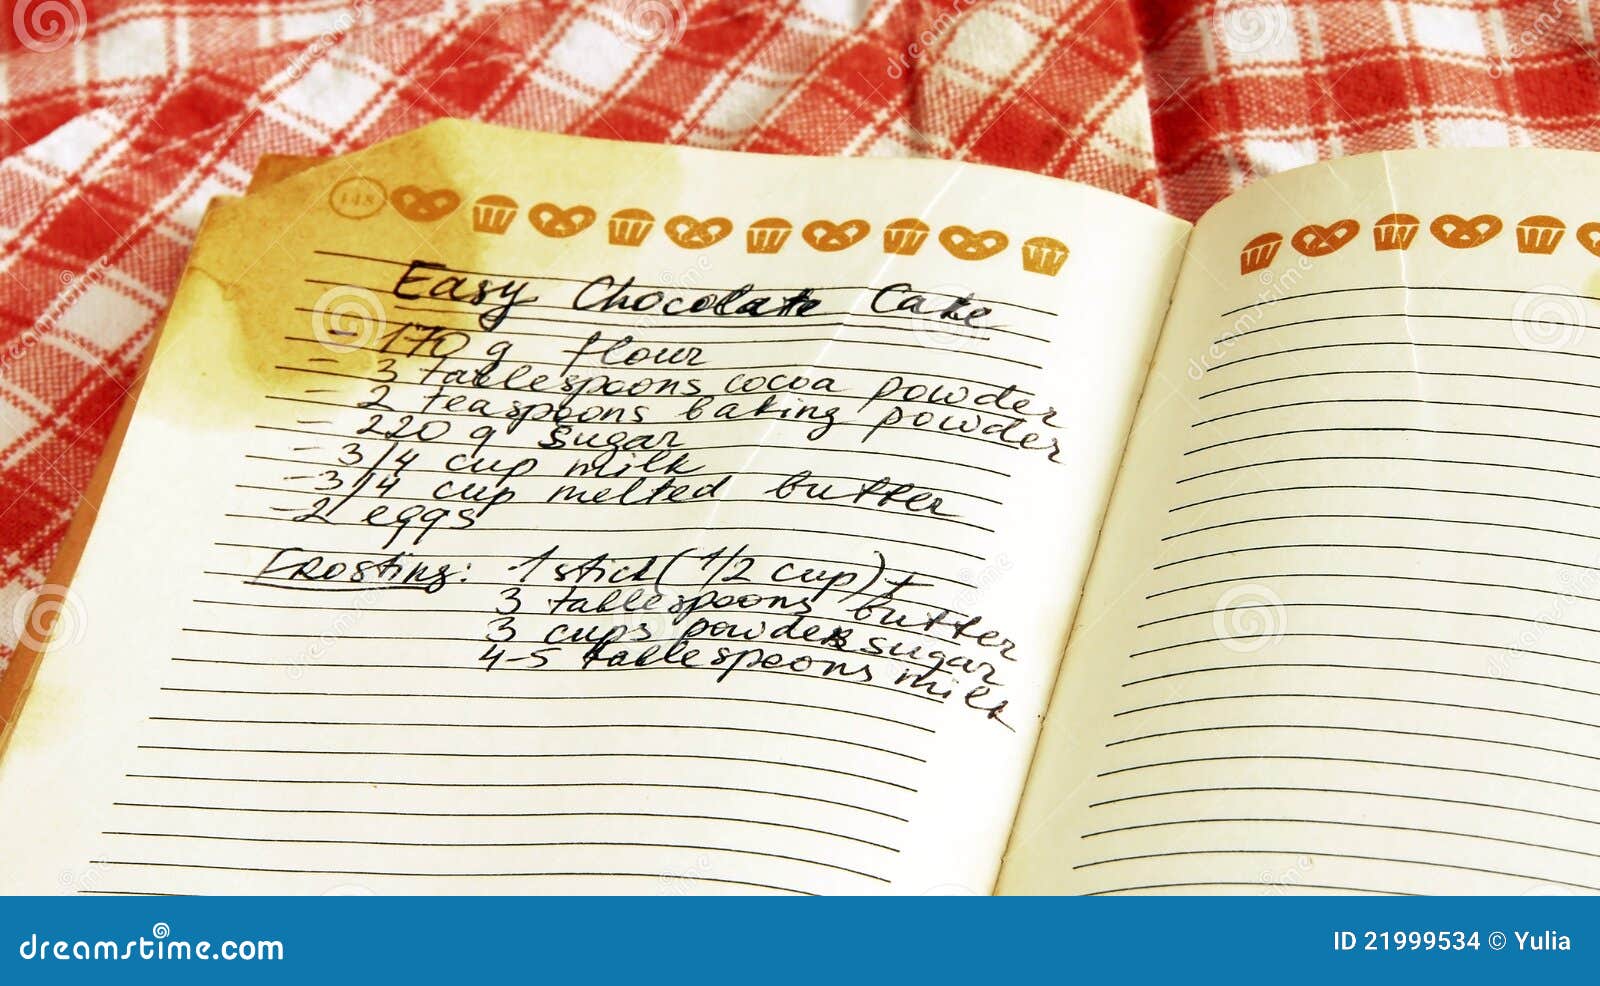 148
Easy Chocolate Cake
- 170 g flour
- 3 tablespoons cocoa powder
- 2 teaspoons baking powder
- 220 g sugar
- 3/4 cup milk
- 3/4 cup melted butter
- 2 eggs
Frosting: 1 stick (1/2 cup) +
3 tablespoons butter
3 cups powder sugar
4-5 tablespoons milk
dreamstime.com
ID 21999534 © Yulia